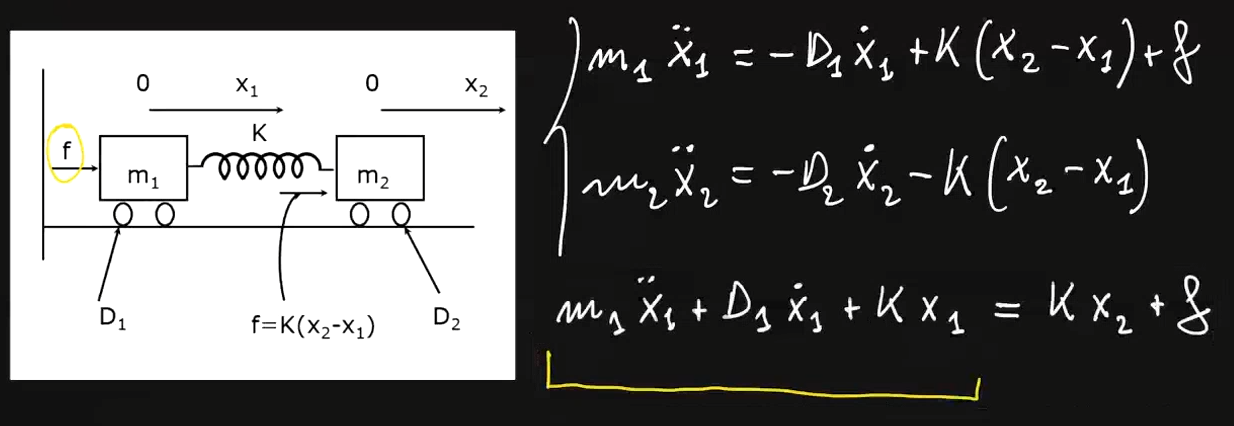 0 x₁ 0 x₂
f K
m₁ m₂
D₁ f=K(x₂-x₁) D₂
m₁ ẍ₁ = -D₁ ẋ₁ + K(x₂ - x₁) + f
m₂ ẍ₂ = -D₂ ẋ₂ - K(x₂ - x₁)
m₁ ẍ₁ + D₁ ẋ₁ + K x₁ = K x₂ + f